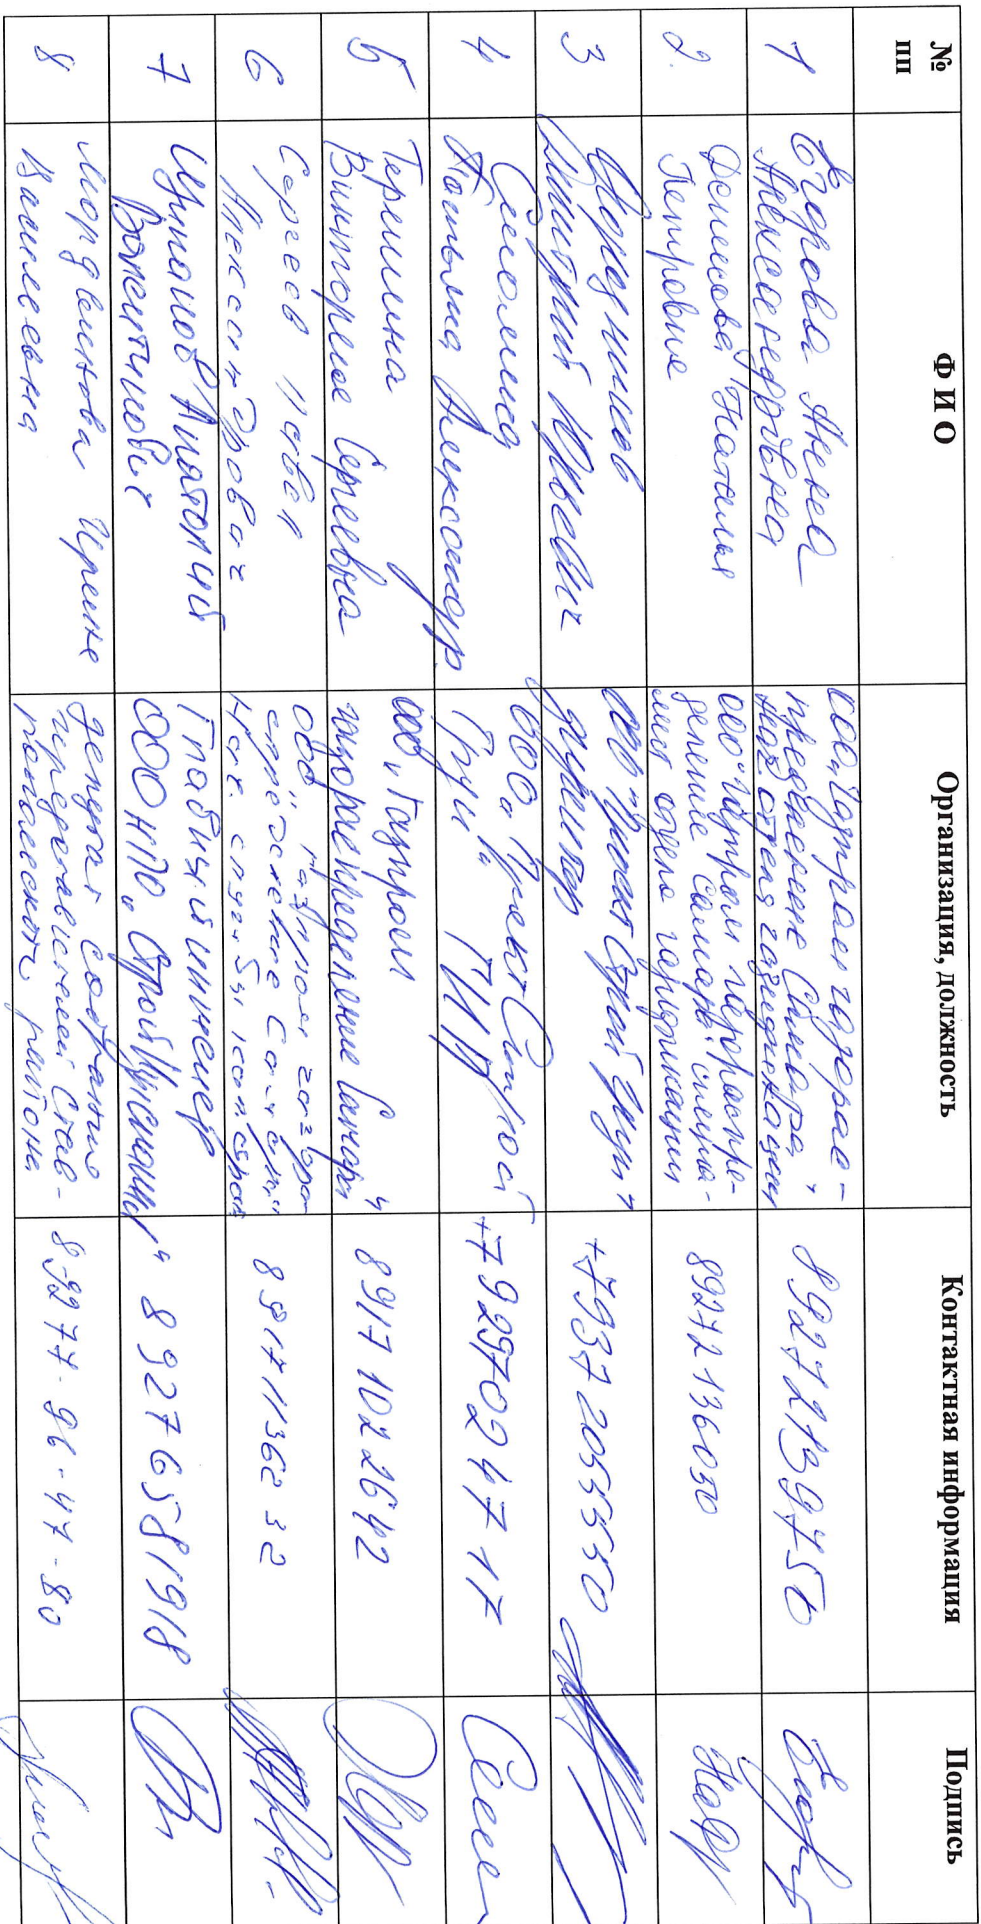 №
пп
Ф И О
Организация, должность
Контактная информация
Подпись
1
Егорова Анна
Александровна
ООО "Газпром газорас-
пределение Самара"
нач отдела газификации
89272139750
2.
Денисова Наталья
Петровна
ООО "Газпром газораспре-
деление Самара" специа-
лист отдела газификации
89272136050
3
Городничев
Дмитрий Юрьевич
ООО "Проект Строй Групп"
директор
+79372055550
4
Смоляков
Александр
ООО "Проект Строй
Групп" ГИП
+79297024717
5
Терешина
Виктория Сергеевна
ООО "Газпром
газораспределение Самара"
89171022642
6
Сергеев Павел
Александрович
ООО "Газпром газора
спределение Самара"
Нач. службы
89171136232
7
Анатолий
Валентинович
Главный инженер
ООО НПО
89276581918
8
Мордвинова Ирина
Васильевна
депутат Собрания
представителей Став-
ропольского района
8-9277-96-47-80